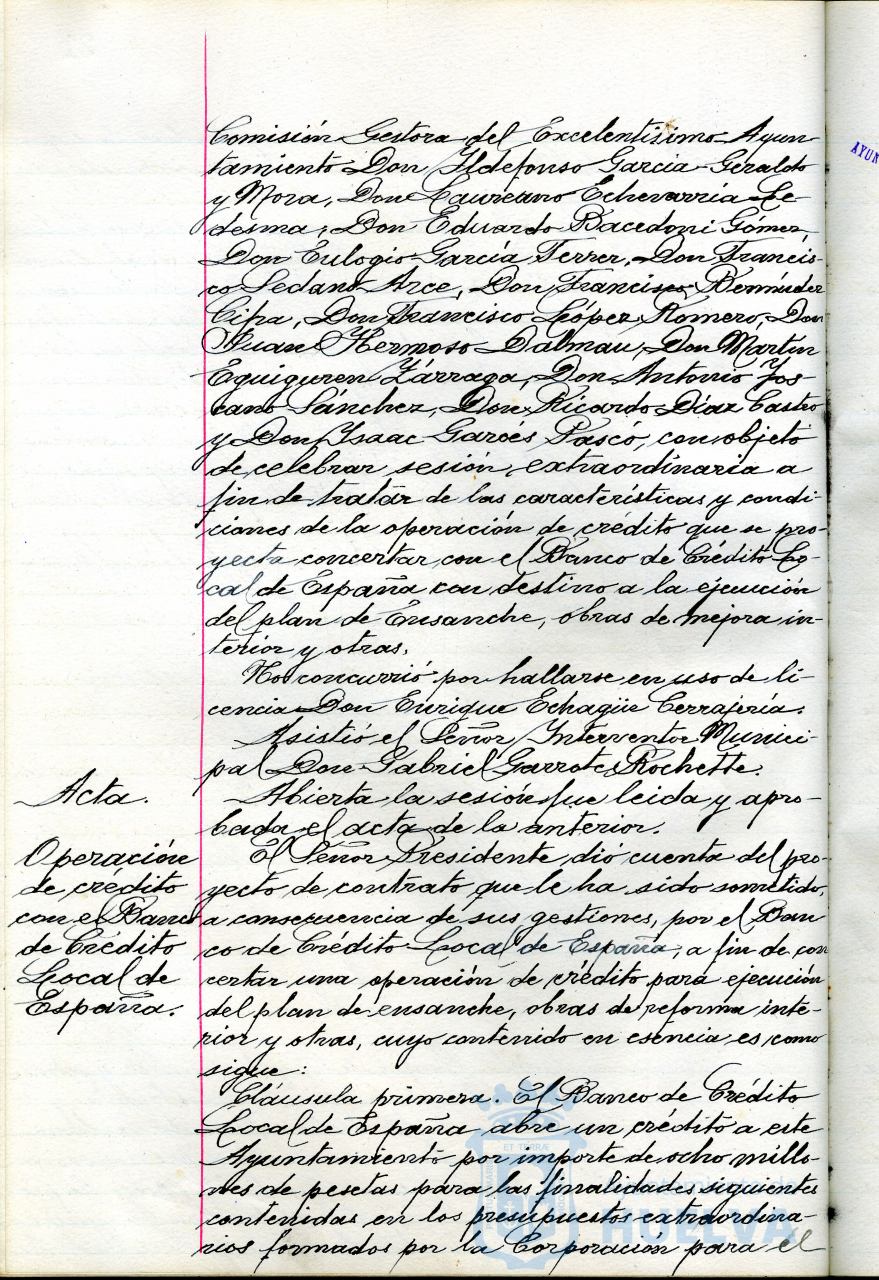 Comisión Gestora del Excelentísimo Ayun-
tamiento Don Ildefonso García-Geraldo
y Mora, Don Laureano Echevarría Le-
desma, Don Eduardo Bacedoni Gómez,
Don Eulogio García Ferrer, Don Francis-
co Sedano Arce, Don Francisco Bermúdez
Cifra, Don Francisco López Romero, Don
Juan Hermoso Dalmau, Don Martín
Eguiguren Zárraga, Don Antonio Jos-
cano Sánchez, Don Ricardo Díaz Castro
y Don Isaac Garcés Pascó, con objeto
de celebrar sesión extraordinaria a
fin de tratar de las características y condi-
ciones de la operación de crédito que se pro-
yecta concertar con el Banco de Crédito Lo-
cal de España con destino a la ejecución
del plan de Ensanche, obras de mejora in-
terior y otras.
No concurrió por hallarse en uso de li-
cencia Don Enrique Echagüe Cerrajería.
Asistió el Señor Interventor Munici-
pal Don Gabriel Garrote Rochette.
Acta.
Abierta la sesión fue leida y apro-
bada el acta de la anterior.
Operación
de crédito
con el Banco
de Crédito
Local de
España.
El Señor Presidente dió cuenta del pro-
yecto de contrato que le ha sido sometido,
a consecuencia de sus gestiones, por el Ban
co de Crédito Local de España, a fin de con
certar una operación de crédito para ejecución
del plan de ensanche, obras de reforma inte-
rior y otras, cuyo contenido en esencia es como
sigue:
Cláusula primera. El Banco de Crédito
Local de España abre un crédito a este
Ayuntamiento por importe de ocho millo-
nes de pesetas para las finalidades siguientes
contenidas en los presupuestos extraordina-
rios formados por la Corporación para el
AYUN
Ayuntamiento de
HUELVA